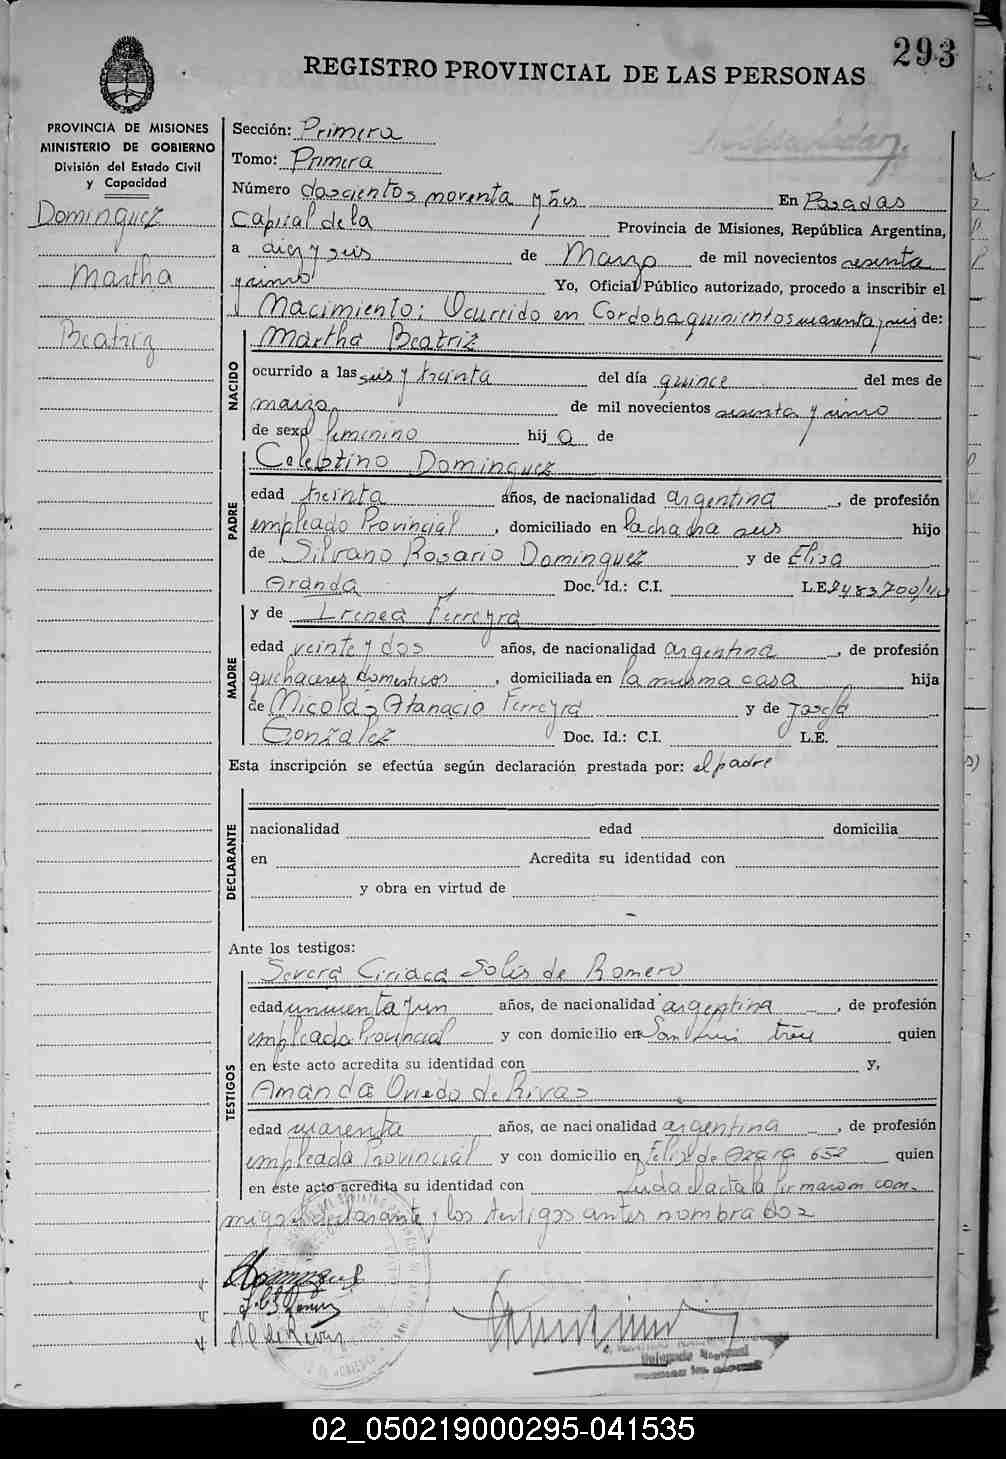 293
REGISTRO PROVINCIAL DE LAS PERSONAS
PROVINCIA DE MISIONES
MINISTERIO DE GOBIERNO
División del Estado Civil
y Capacidad
Dominguez
Martha
Beatriz
Sección: Primera
Tomo: Primera
Número doscientos noventa y tres En Posadas
Capital de la Provincia de Misiones, República Argentina,
a diez y seis de Marzo de mil novecientos sesenta
y cinco Yo, Oficial Público autorizado, procedo a inscribir el
Nacimiento: Ocurrido en Cordoba quinientos cuarenta y seis de:
NACIDO
Martha Beatriz
ocurrido a las seis y treinta del día quince del mes de
marzo de mil novecientos sesenta y cinco
de sexo femenino hij a de
PADRE
Celestino Dominguez
edad treinta años, de nacionalidad argentina, de profesión
empleado Provincial, domiciliado en la chacra seis hijo
de Silvano Rosario Dominguez y de Elisa
Aranda Doc. Id.: C.I. L.E.
MADRE
y de Irenea Ferreyra
edad veinte y dos años, de nacionalidad argentina, de profesión
quehaceres domesticos, domiciliada en la misma casa hija
de Nicolás Atanacio Ferreyra y de Josefa
Gonzalez Doc. Id.: C.I. L.E.
Esta inscripción se efectúa según declaración prestada por: el padre
DECLARANTE
nacionalidad edad domicilia
en Acredita su identidad con
y obra en virtud de
Ante los testigos:
TESTIGOS
Severa Ciriaca Solis de Romero
edad cincuenta y un años, de nacionalidad argentina, de profesión
empleada Provincial y con domicilio en San Luis tres quien
en este acto acredita su identidad con y,
Amanda Oviedo de Rivas
edad cuarenta años, de nacionalidad argentina, de profesión
empleada Provincial y con domicilio en Felix de Azara 652 quien
en este acto acredita su identidad con Leida el acta la firmaron con-
migo el declarante y los testigos antes nombrados
02_050219000295-041535